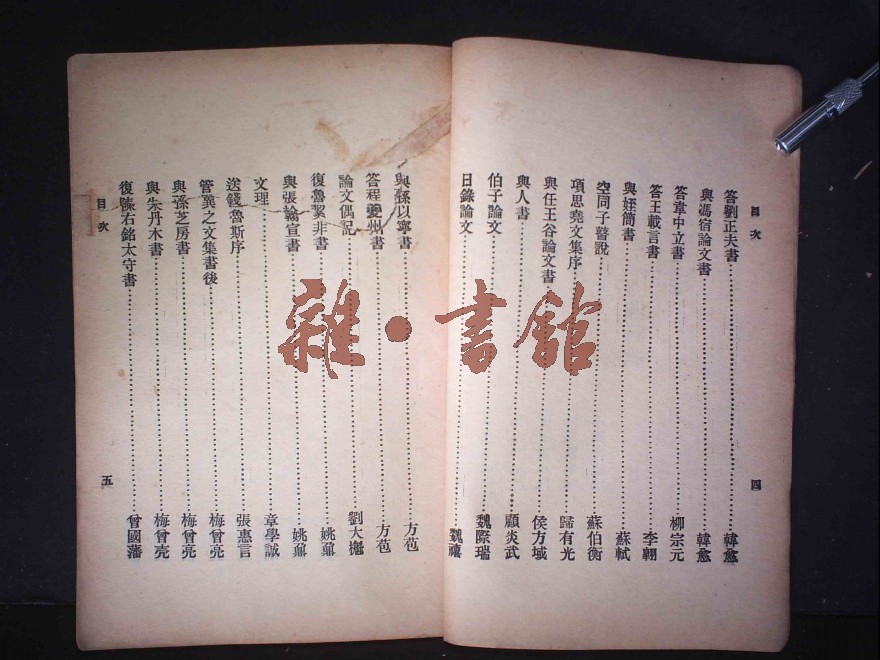 目次
四
答劉正夫書 韓愈
與馮宿論文書 韓愈
答韋中立書 柳宗元
答王載言書 李翺
與姪簡書 蘇軾
空同子瞽說 蘇伯衡
項思堯文集序 歸有光
與任王谷論文書 侯方域
與人書 顧炎武
伯子論文 魏際瑞
日錄論文 魏禧
與孫以寧書 方苞
答程夔州書 方苞
論文偶記 劉大櫆
復魯絜非書 姚鼐
與張翰宣書 姚鼐
文理 章學誠
送錢魯斯序 張惠言
管異之文集書後 梅曾亮
與孫芝房書 梅曾亮
與朱丹木書 梅曾亮
復陳右銘太守書 曾國藩
目次
五
雜·書館